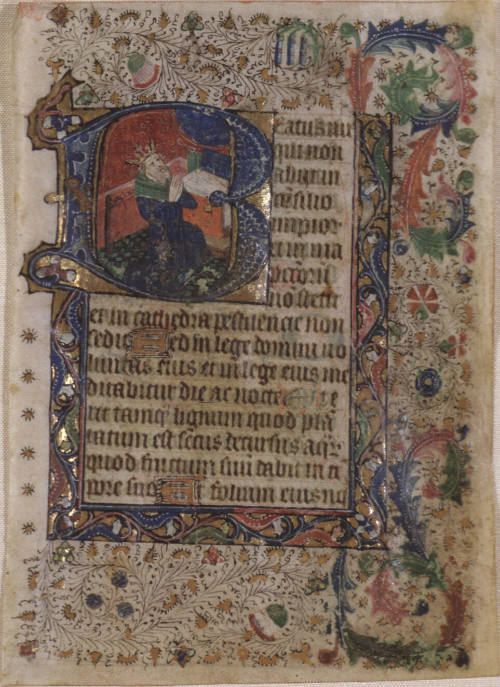 Beatus uir
qui non
abijt in
consilio
impior
et in uia
peccatoru
no stetit
et in cathedra pestilencie non
sedit Sed in lege domini uo
luntas eius et in lege eius me
ditabitur die ac nocte Et e
rit tamq lignum quod pla
tatum est secus decursus aqr
quod fructum suu dabit in te
pore suo Et folium eius no